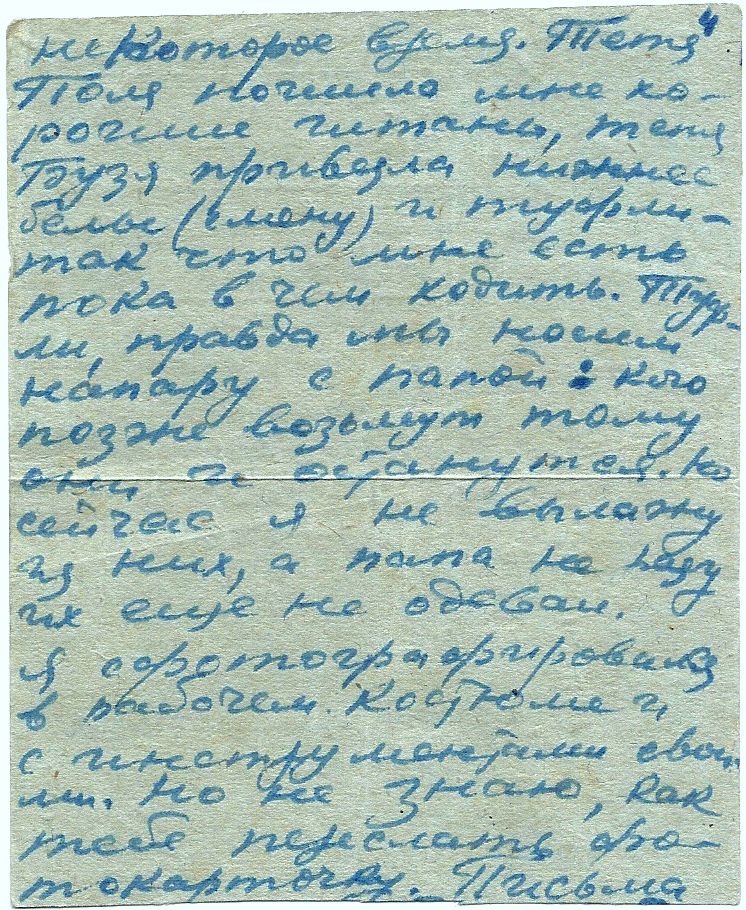 некоторое время. Тетя 4
Поля пошила мне хо-
рошие штаны, тетя
Бузя привезла нижнее
белье (смену) и туфли-
так что мне есть
пока в чем ходить. Туф-
ли, правда мы носим
напару с папой: кто
позже возьмут тому
они и останутся. Но
сейчас я не вылажу
из них, а папа ни разу
их еще не одевал.
Я сфотографировался
в рабочем костюме и
с инструментами свои-
ми. Но не знаю, как
тебе переслать фо-
токарточку. Письма